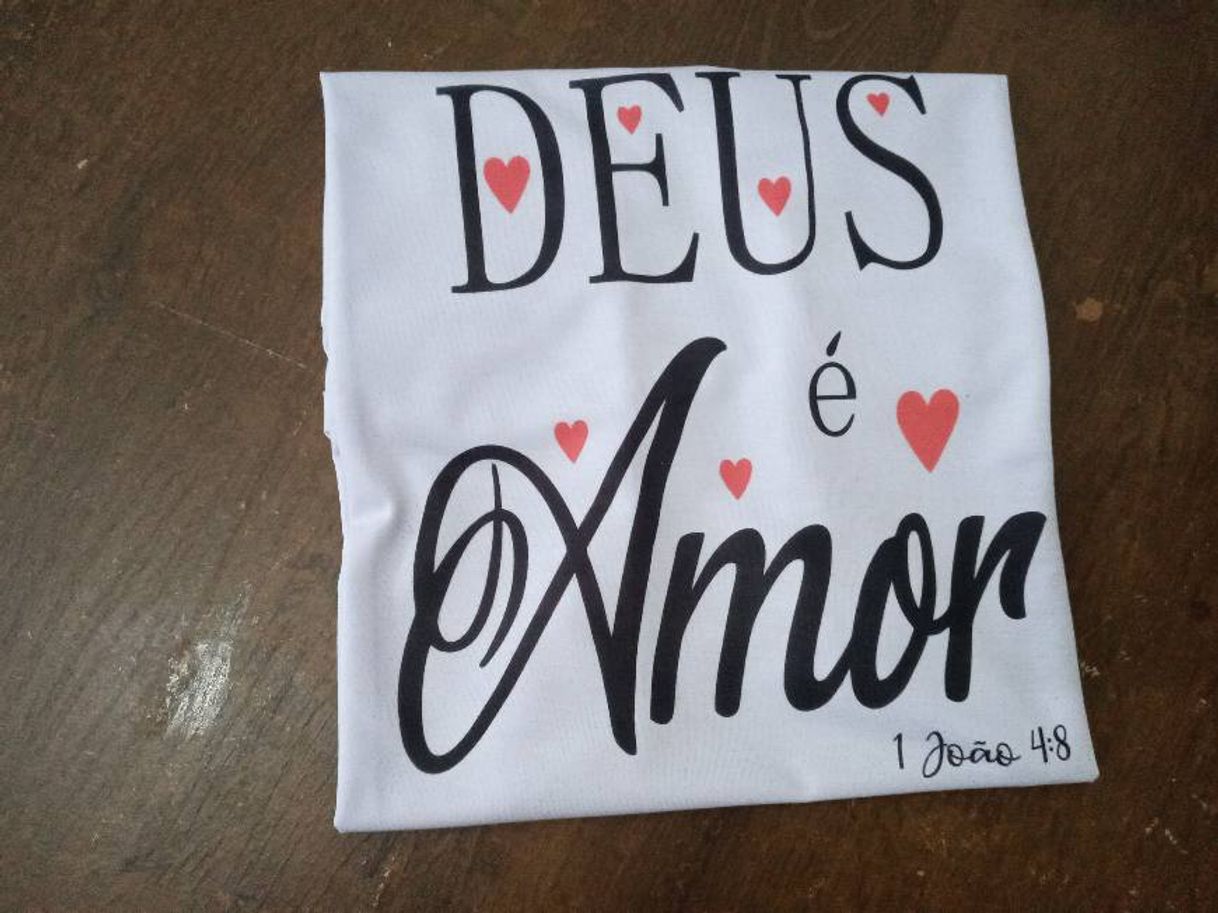 DEUS
é
Amor
1 João 4:8